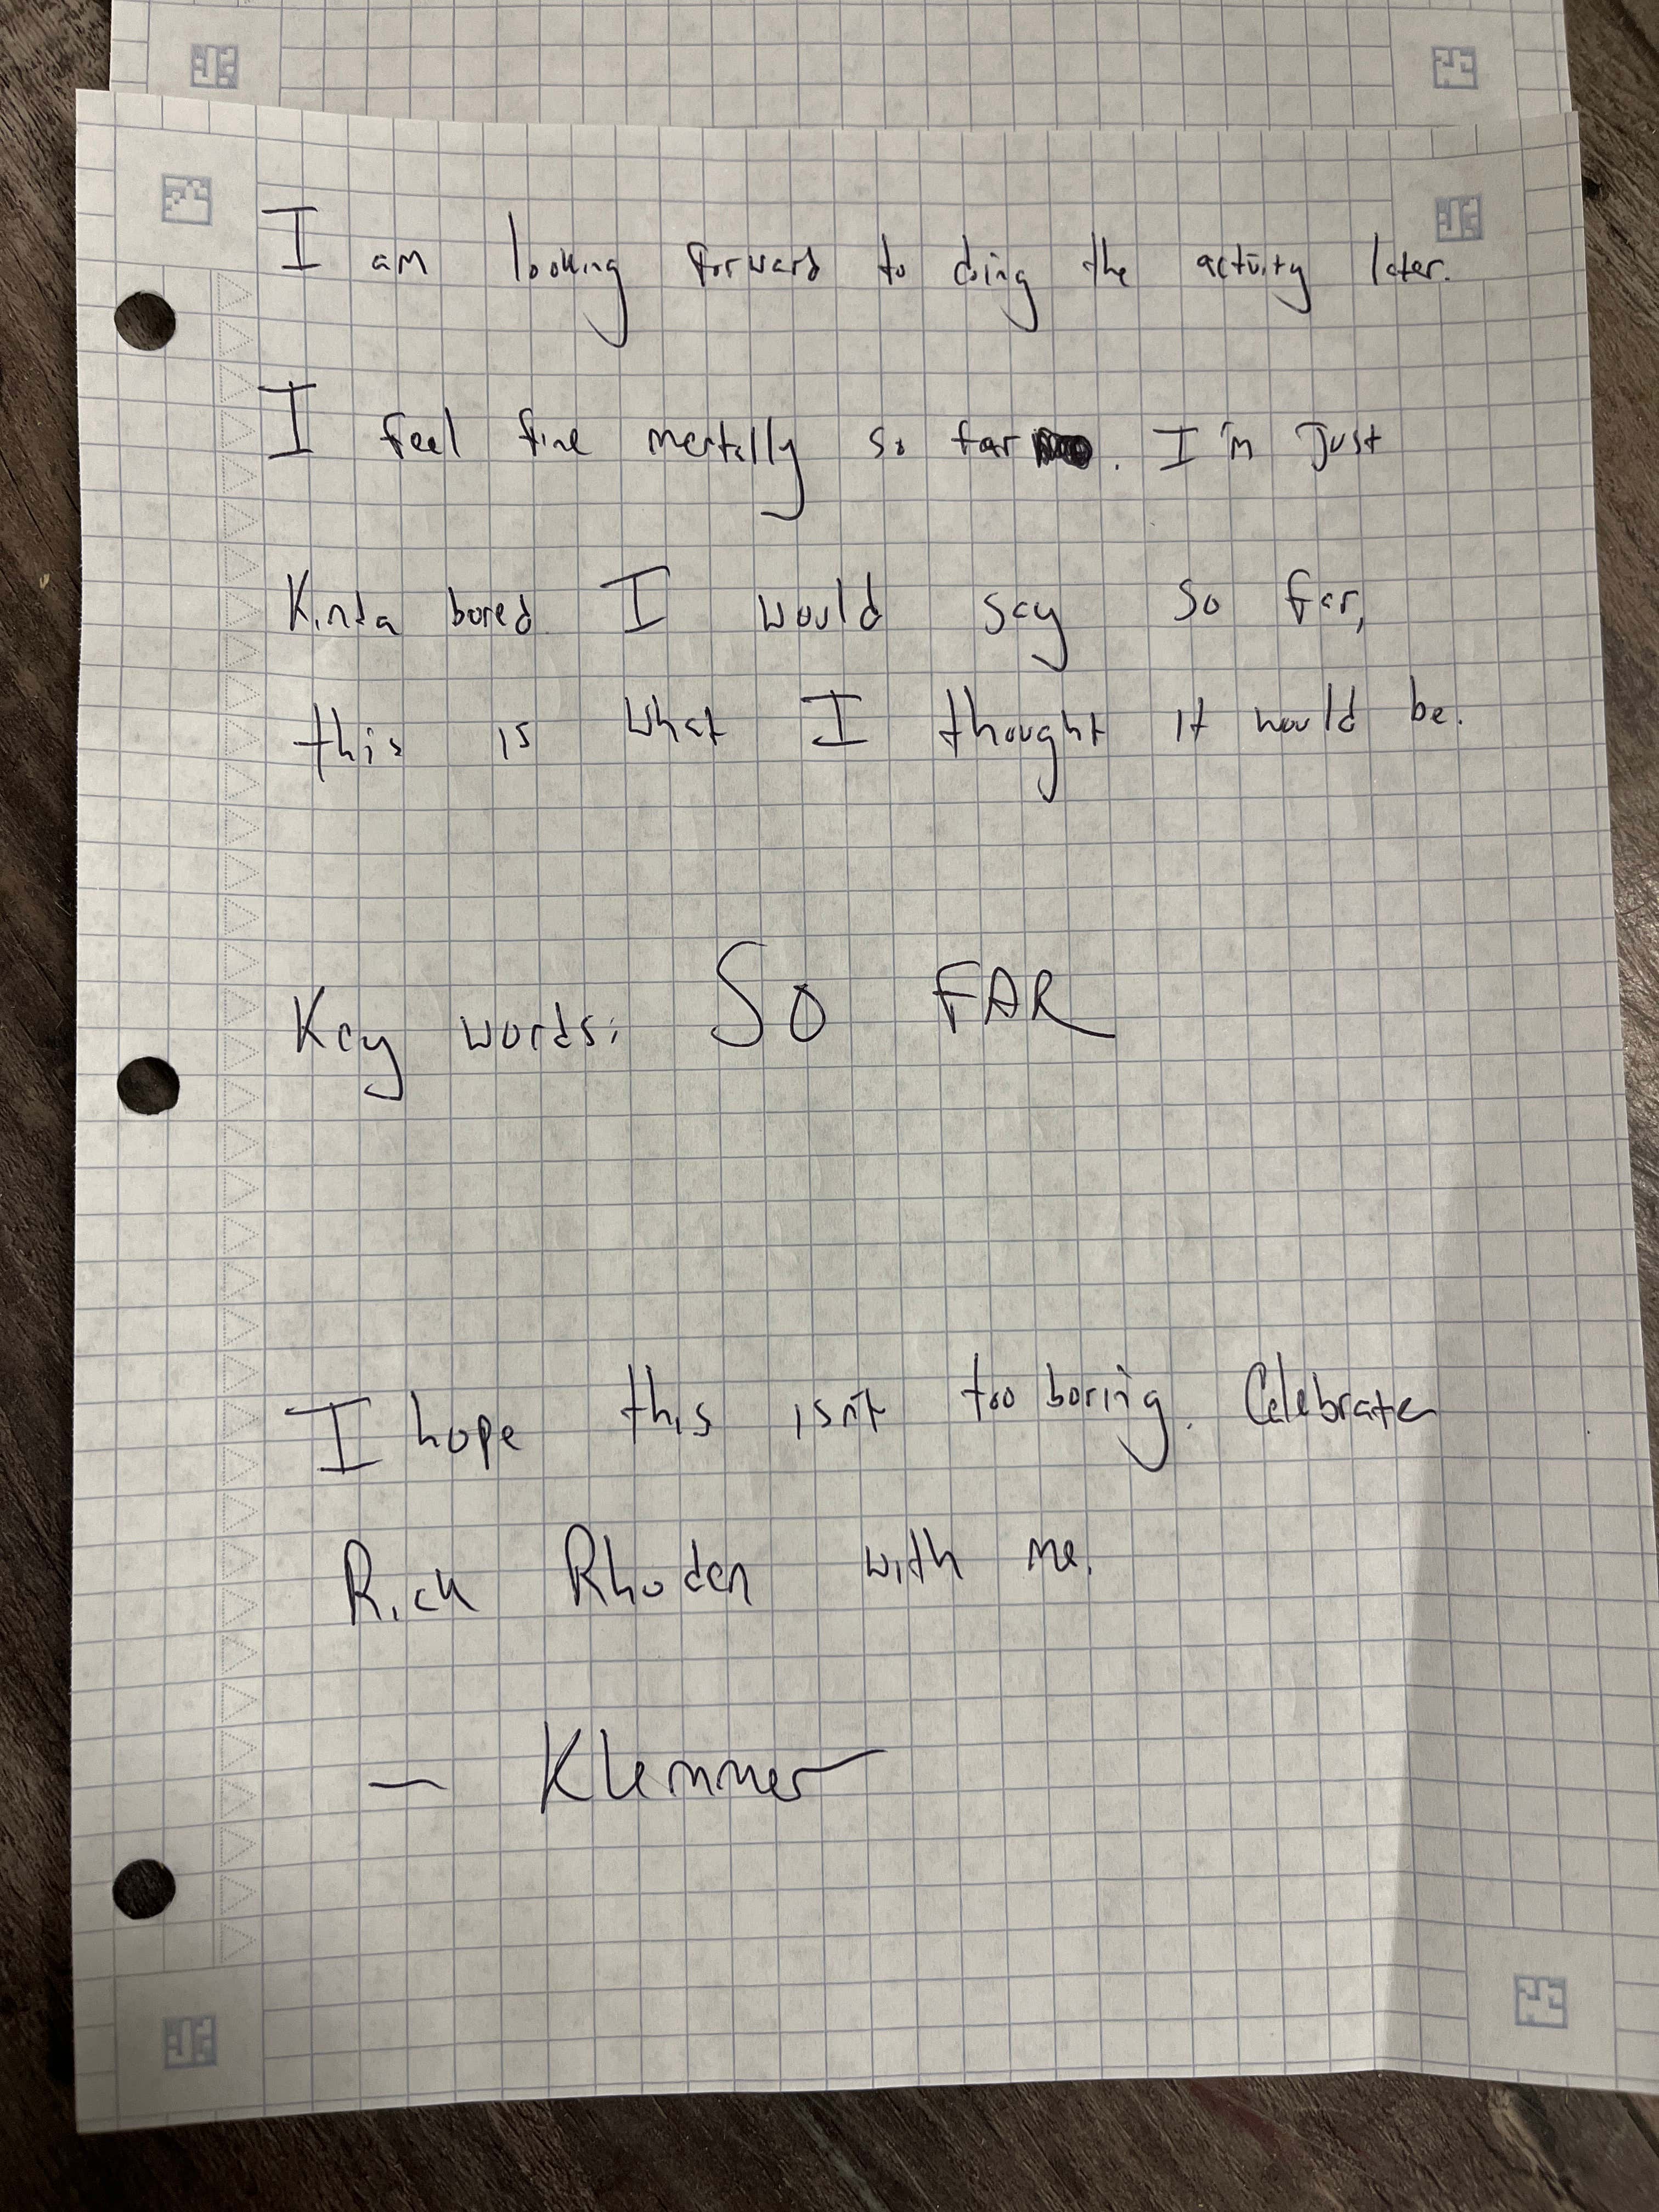 I am looking forward to doing the activity later.
I feel fine mentally so far. I'm Just
Kinda bored I would say so far,
this is what I thought it would be.
Key words: SO FAR
I hope this isn't too boring. Celebrate
Rick Rhoden with me.
— Klemmer